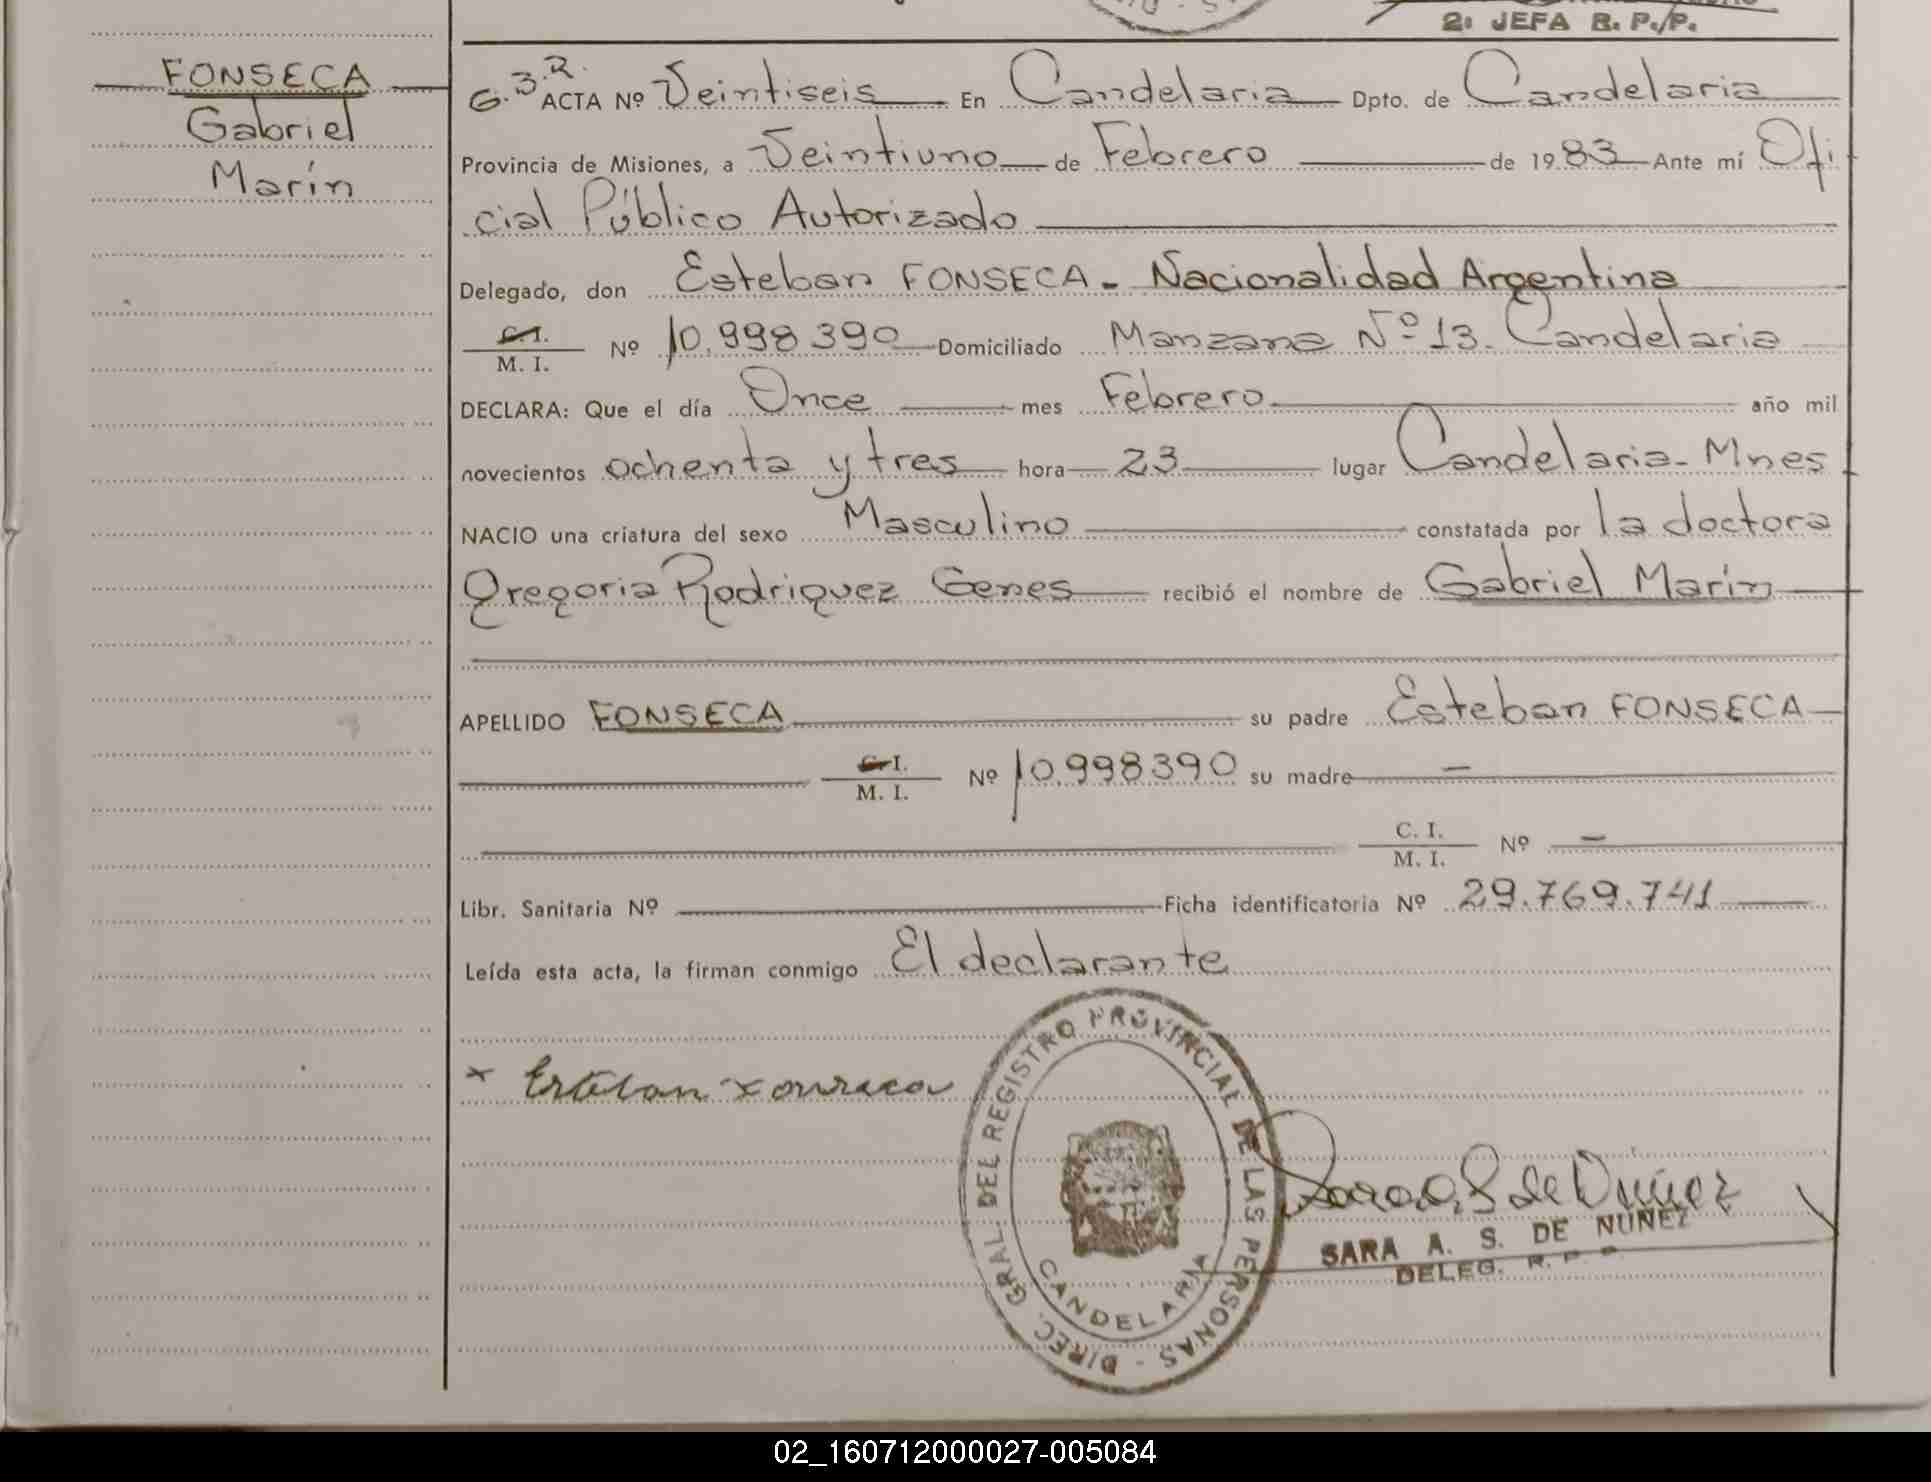 2º JEFA R. P./P.
FONSECA
Gabriel
Marín
G.3.R. ACTA Nº Veintiseis En Candelaria Dpto. de Candelaria
Provincia de Misiones, a Veintiuno de Febrero de 1983 Ante mí Ofi
cial Público Autorizado
Delegado, don Esteban FONSECA - Nacionalidad Argentina
C.I. / M. I. Nº 10.998390 Domiciliado Manzana Nº 13. Candelaria
DECLARA: Que el día Once mes Febrero año mil
novecientos ochenta y tres hora 23 lugar Candelaria - Mnes
NACIO una criatura del sexo Masculino constatada por la doctora
Gregoria Rodriquez Genes recibió el nombre de Gabriel Marín
APELLIDO FONSECA su padre Esteban FONSECA
C.I. / M. I. Nº 10.998390 su madre —
C. I. / M. I. Nº —
Libr. Sanitaria Nº Ficha identificatoria Nº 29.769.741
Leída esta acta, la firman conmigo El declarante
x Esteban Fonseca
DIREC. GRAL. DEL REGISTRO PROVINCIAL DE LAS PERSONAS -
CANDELARIA
Sara A. S de Nuñez
SARA A. S. DE NUÑEZ
DELEG. R. P. P
02_160712000027-005084